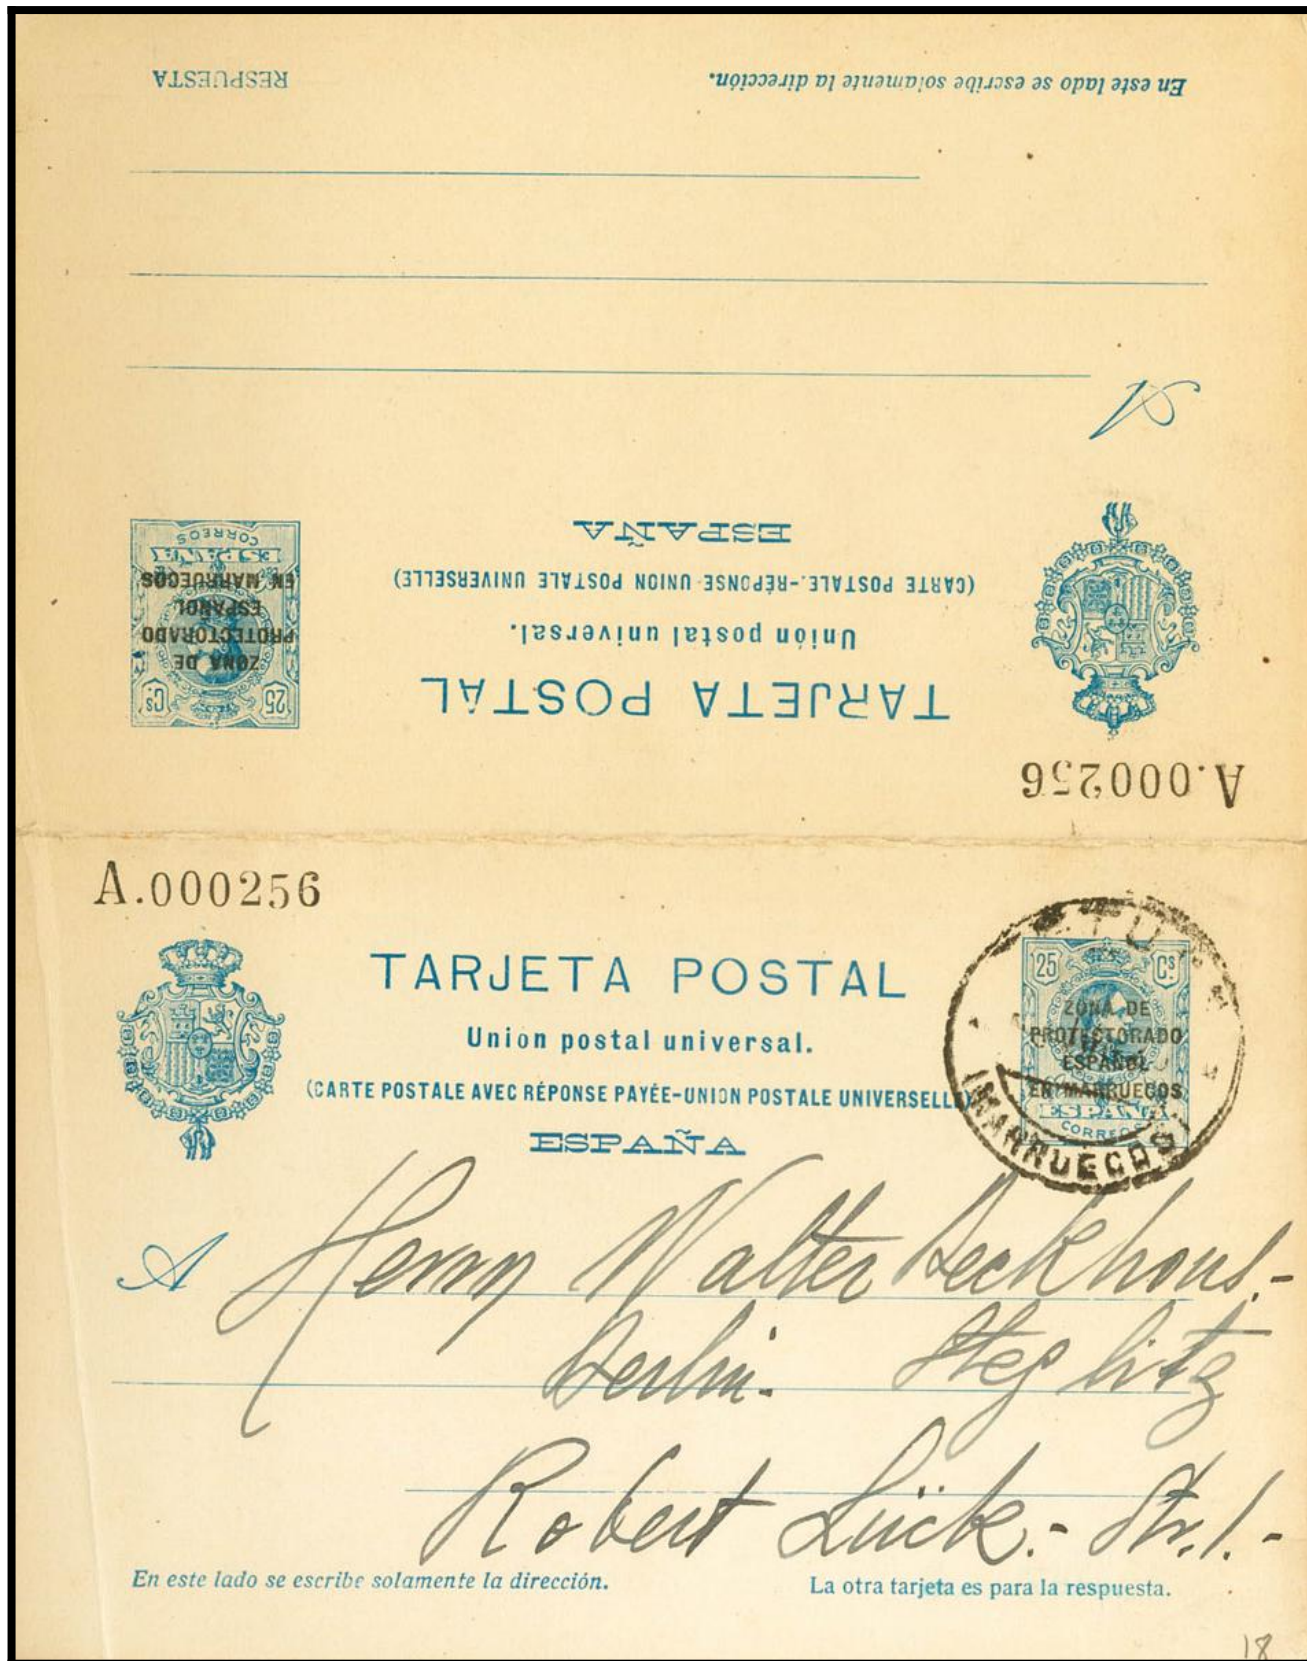 RESPUESTA
En este lado se escribe solamente la dirección.
A
ESPAÑA
(CARTE POSTALE.-RÉPONSE-UNION POSTALE UNIVERSELLE)
Unión postal universal.
TARJETA POSTAL
CORREOS
ESPAÑA
ZONA DE
PROTECTORADO
ESPAÑOL
EN MARRUECOS
25 Cs
A.000256
A.000256
TARJETA POSTAL
Union postal universal.
(CARTE POSTALE AVEC RÉPONSE PAYÉE-UNION POSTALE UNIVERSELLE)
ESPAÑA
25 Cs
ZONA DE
PROTECTORADO
ESPAÑOL
EN MARRUECOS
ESPAÑA
CORREOS
(MARRUECOS)
A
Walter
Berlin. Steglitz
Robert Lück.- Str. 1.-
En este lado se escribe solamente la dirección.
La otra tarjeta es para la respuesta.
18